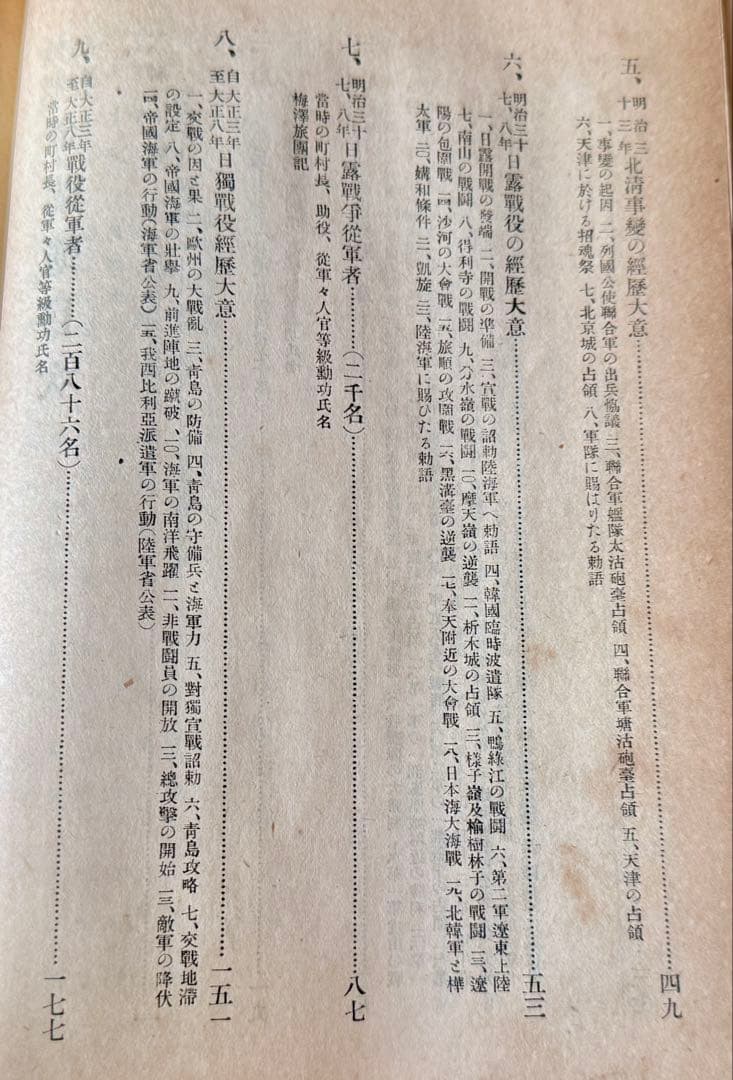 五、明治三十三年北淸事變の經歷大意…………四九
一、事變の起因 二、列國公使聯合軍の出兵協議 三、聯合軍艦隊太沽砲臺占領 四、聯合軍塘沽砲臺占領 五、天津の占領
六、天津に於ける招魂祭 七、北京城の占領 八、軍隊に賜はりたる勅語
六、明治三十七、八年日露戰役の經歷大意…………五三
一、日露開戰の發端 二、開戰の準備 三、宣戰の詔勅陸海軍へ勅語 四、韓國臨時派遣隊 五、鴨綠江の戰鬪 六、第二軍遼東上陸
七、南山の戰鬪 八、得利寺の戰鬪 九、分水嶺の戰鬪 一〇、摩天嶺の逆襲 一一、析木城の占領 一二、樣子嶺及楡樹林子の戰鬪 一三、遼
陽の包圍戰 一四、沙河の大會戰 一五、旅順の攻圍戰 一六、黑溝臺の逆襲 一七、奉天附近の大會戰 一八、日本海大海戰 一九、北韓軍と樺
太軍 二〇、媾和條件 二一、凱旋 二二、陸海軍に賜ひたる勅語
七、明治三十七、八年日露戰爭從軍者…………(二千名)…………八七
當時の町村長、助役、從軍々人官等級勳功氏名
梅澤旅團記
八、自大正三年至大正八年日獨戰役經歷大意…………一五一
一、交戰の因と果 二、歐州の大戰亂 三、靑島の防備 四、靑島の守備兵と海軍力 五、對獨宣戰詔勅 六、靑島攻略 七、交戰地滯
の設定 八、帝國海軍の壯擧 九、前進陣地の蹴破 一〇、海軍の南洋飛躍 一一、非戰鬪員の開放 一二、總攻擊の開始 一三、敵軍の降伏
一四、帝國海軍の行動(海軍省公表) 一五、我西比利亞派遣軍の行動(陸軍省公表)
九、自大正三年至大正八年戰役從軍者…………(二百八十六名)…………一七七
當時の町村長、從軍々人官等級勳功氏名